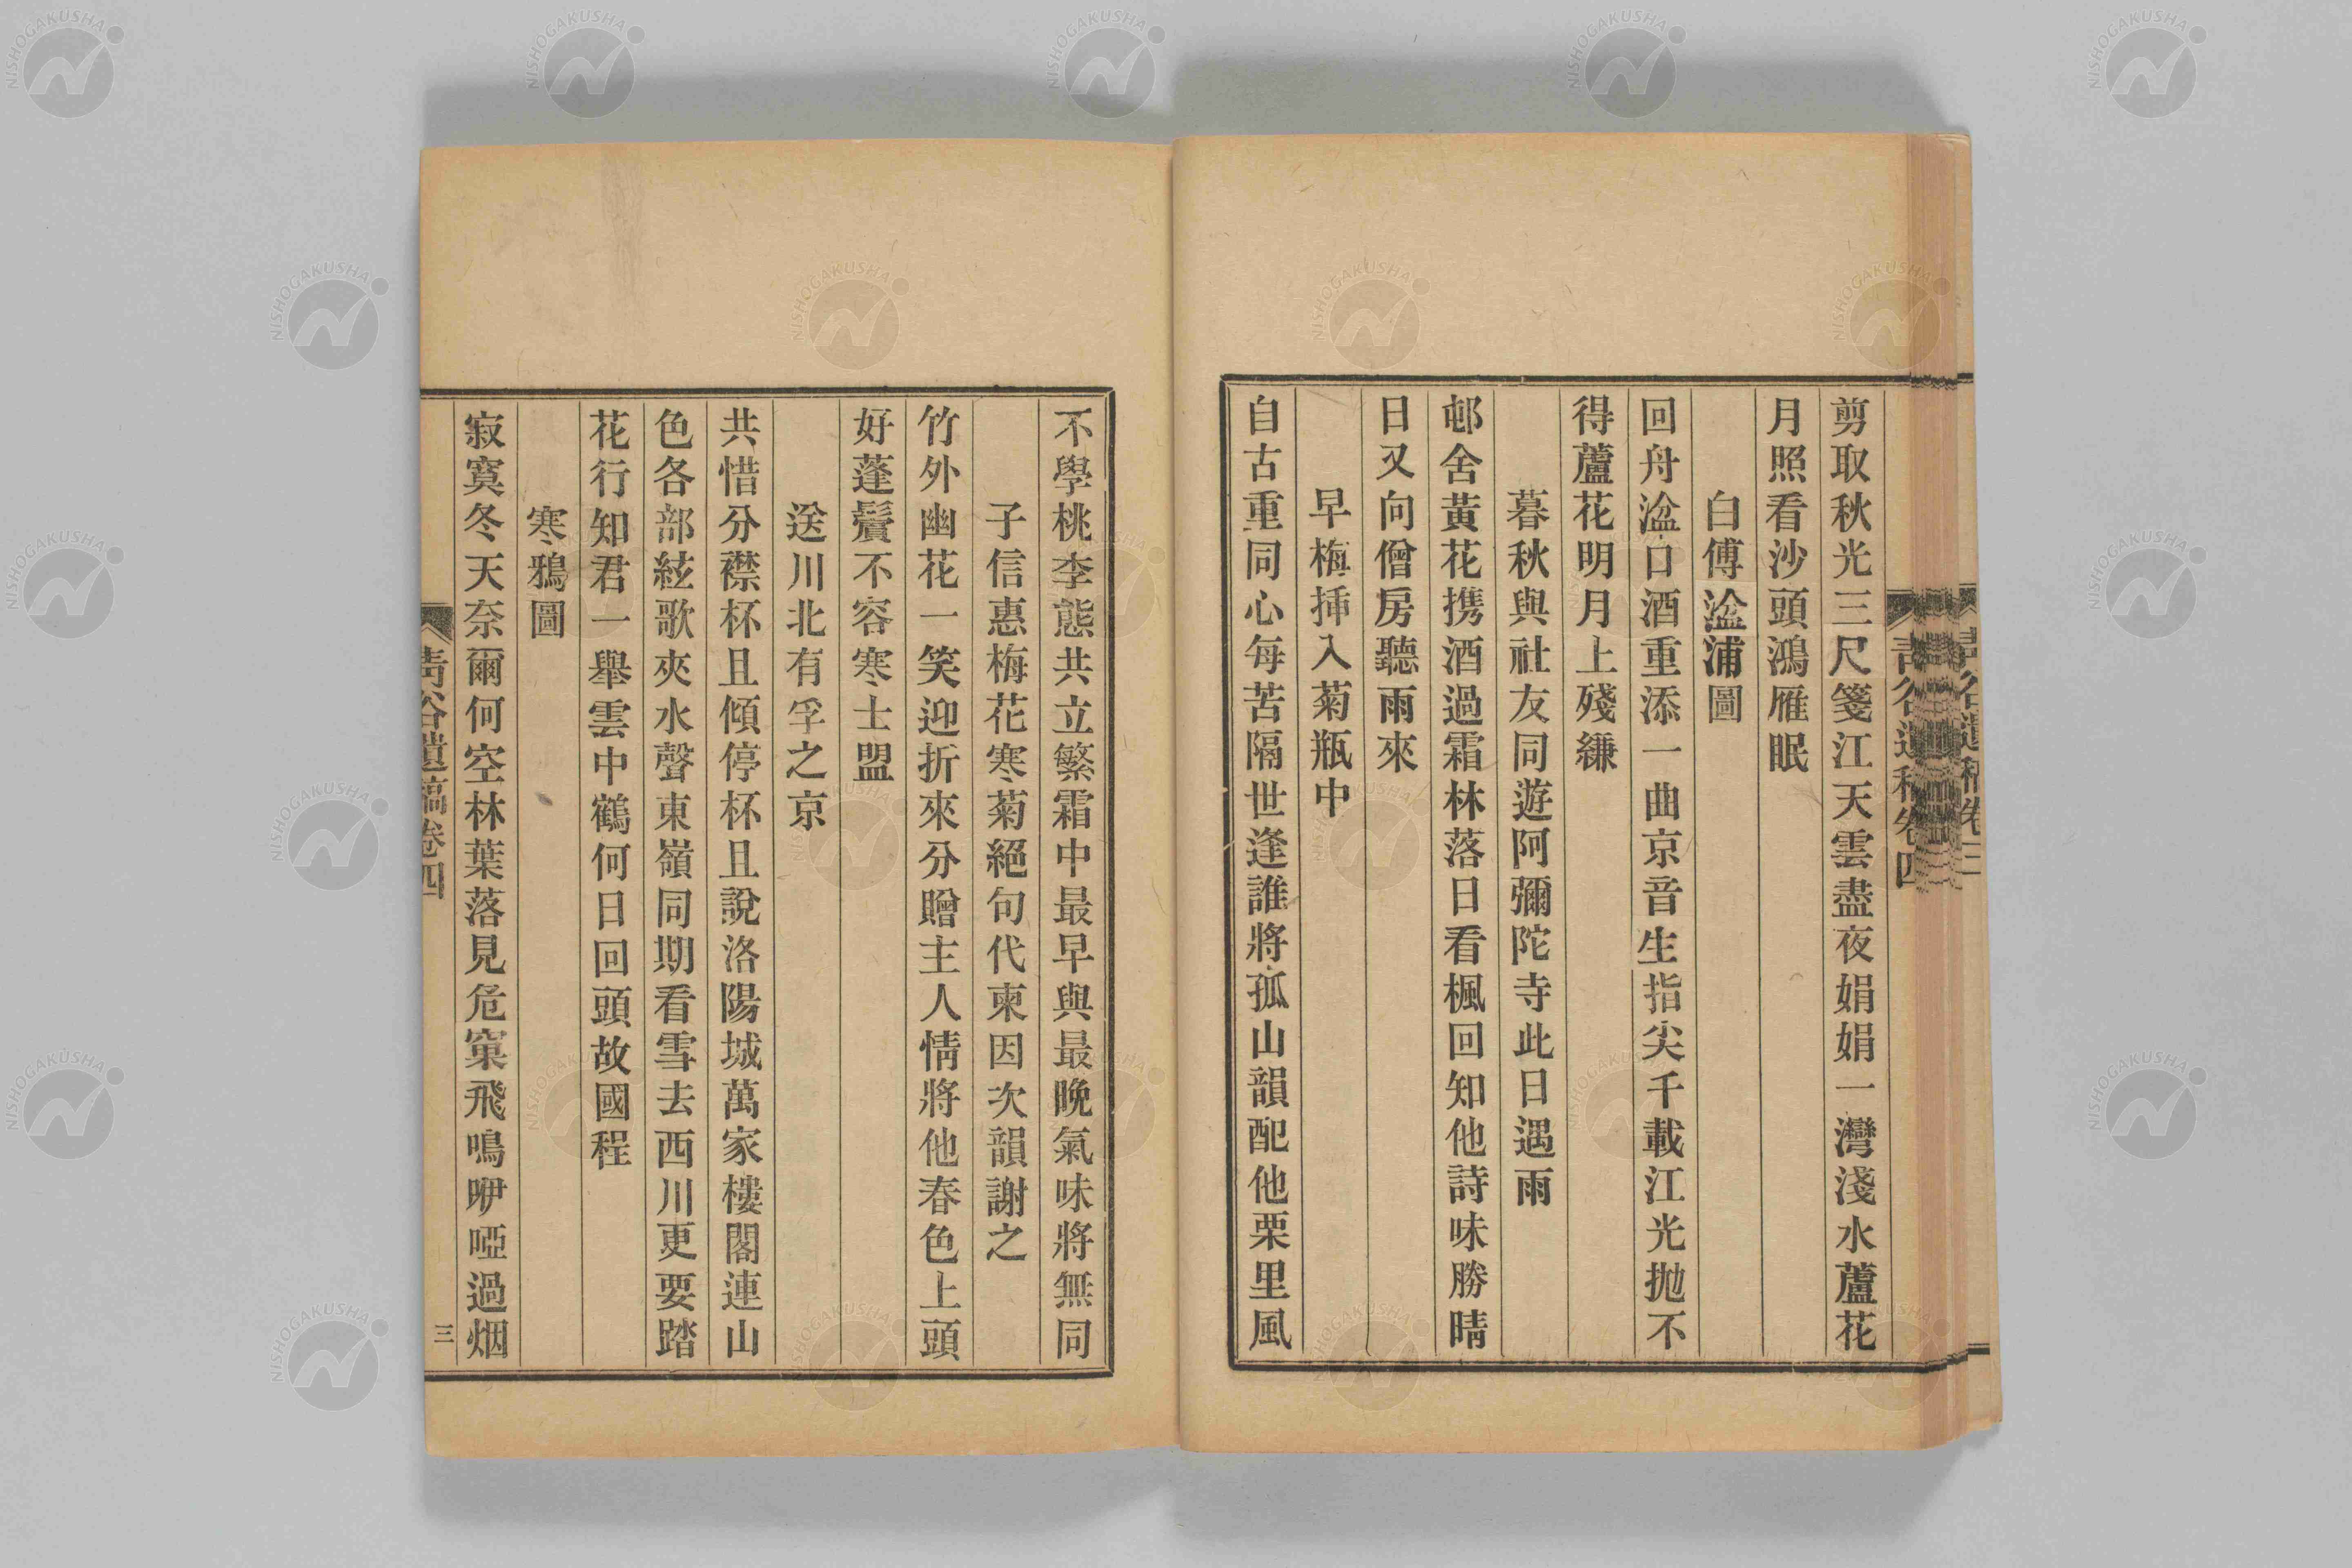 剪取秋光三尺箋江天雲盡夜娟娟一灣淺水蘆花
月照看沙頭鴻雁眠
白傅湓浦圖
回舟湓口酒重添一曲京音生指尖千載江光拋不
得蘆花明月上殘縑
暮秋與社友同遊阿彌陀寺此日遇雨
邨舍黃花携酒過霜林落日看楓回知他詩味勝晴
日又向僧房聽雨來
早梅揷入菊瓶中
自古重同心每苦隔世逢誰將孤山韻配他栗里風
不學桃李態共立繁霜中最早與最晚氣味將無同
子信惠梅花寒菊絕句代柬因次韻謝之
竹外幽花一笑迎折來分贈主人情將他春色上頭
好蓬鬢不容寒士盟
送川北有孚之京
共惜分襟杯且傾停杯且說洛陽城萬家樓閣連山
色各部絃歌夾水聲東嶺同期看雪去西川更要踏
花行知君一舉雲中鶴何日回頭故國程
寒鴉圖
寂寞冬天奈爾何空林葉落見危窠飛鳴咿啞過烟
靑谷遺稿卷四
三
NISHOGAKUSHA